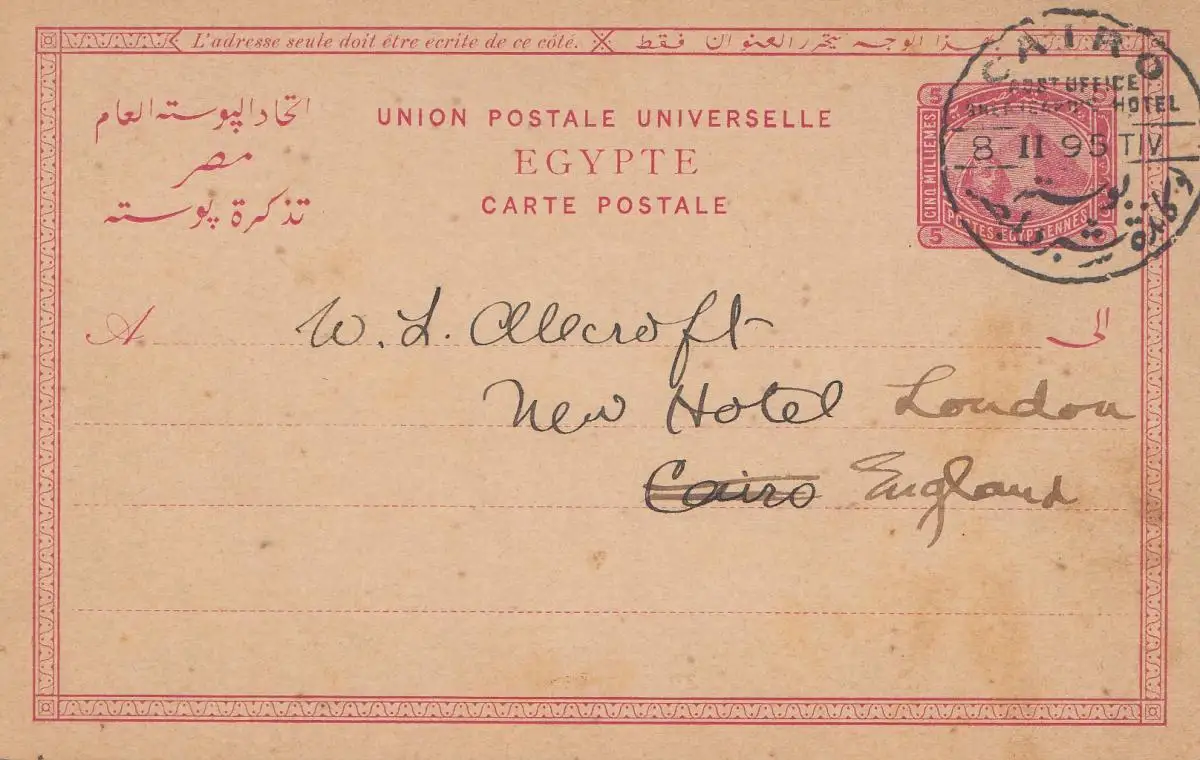 L'adresse seule doit être écrite de ce côté. بهذا الوجه يتحرر العنوان فقط
اتحاد البوسته العام
مصر
تذكرة بوسته
UNION POSTALE UNIVERSELLE
EGYPTE
CARTE POSTALE
5
CINQ MILLIEMES
POSTES EGYPTIENNES
5
CAIRO
POST OFFICE
HOTEL
8 II 95 TIV
بوستة
A W. L. Allcroft الى
New Hotel London
Cairo England